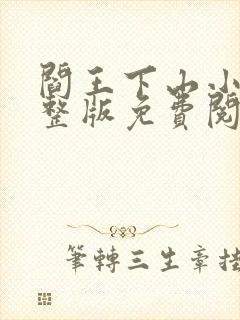 閻王下山小
整版免費閱
筆轉三生章掛